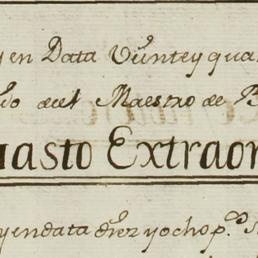 y en Data Veintey qua
do del Maestro de B
uasto Extraor
y endata diez y ocho p.s